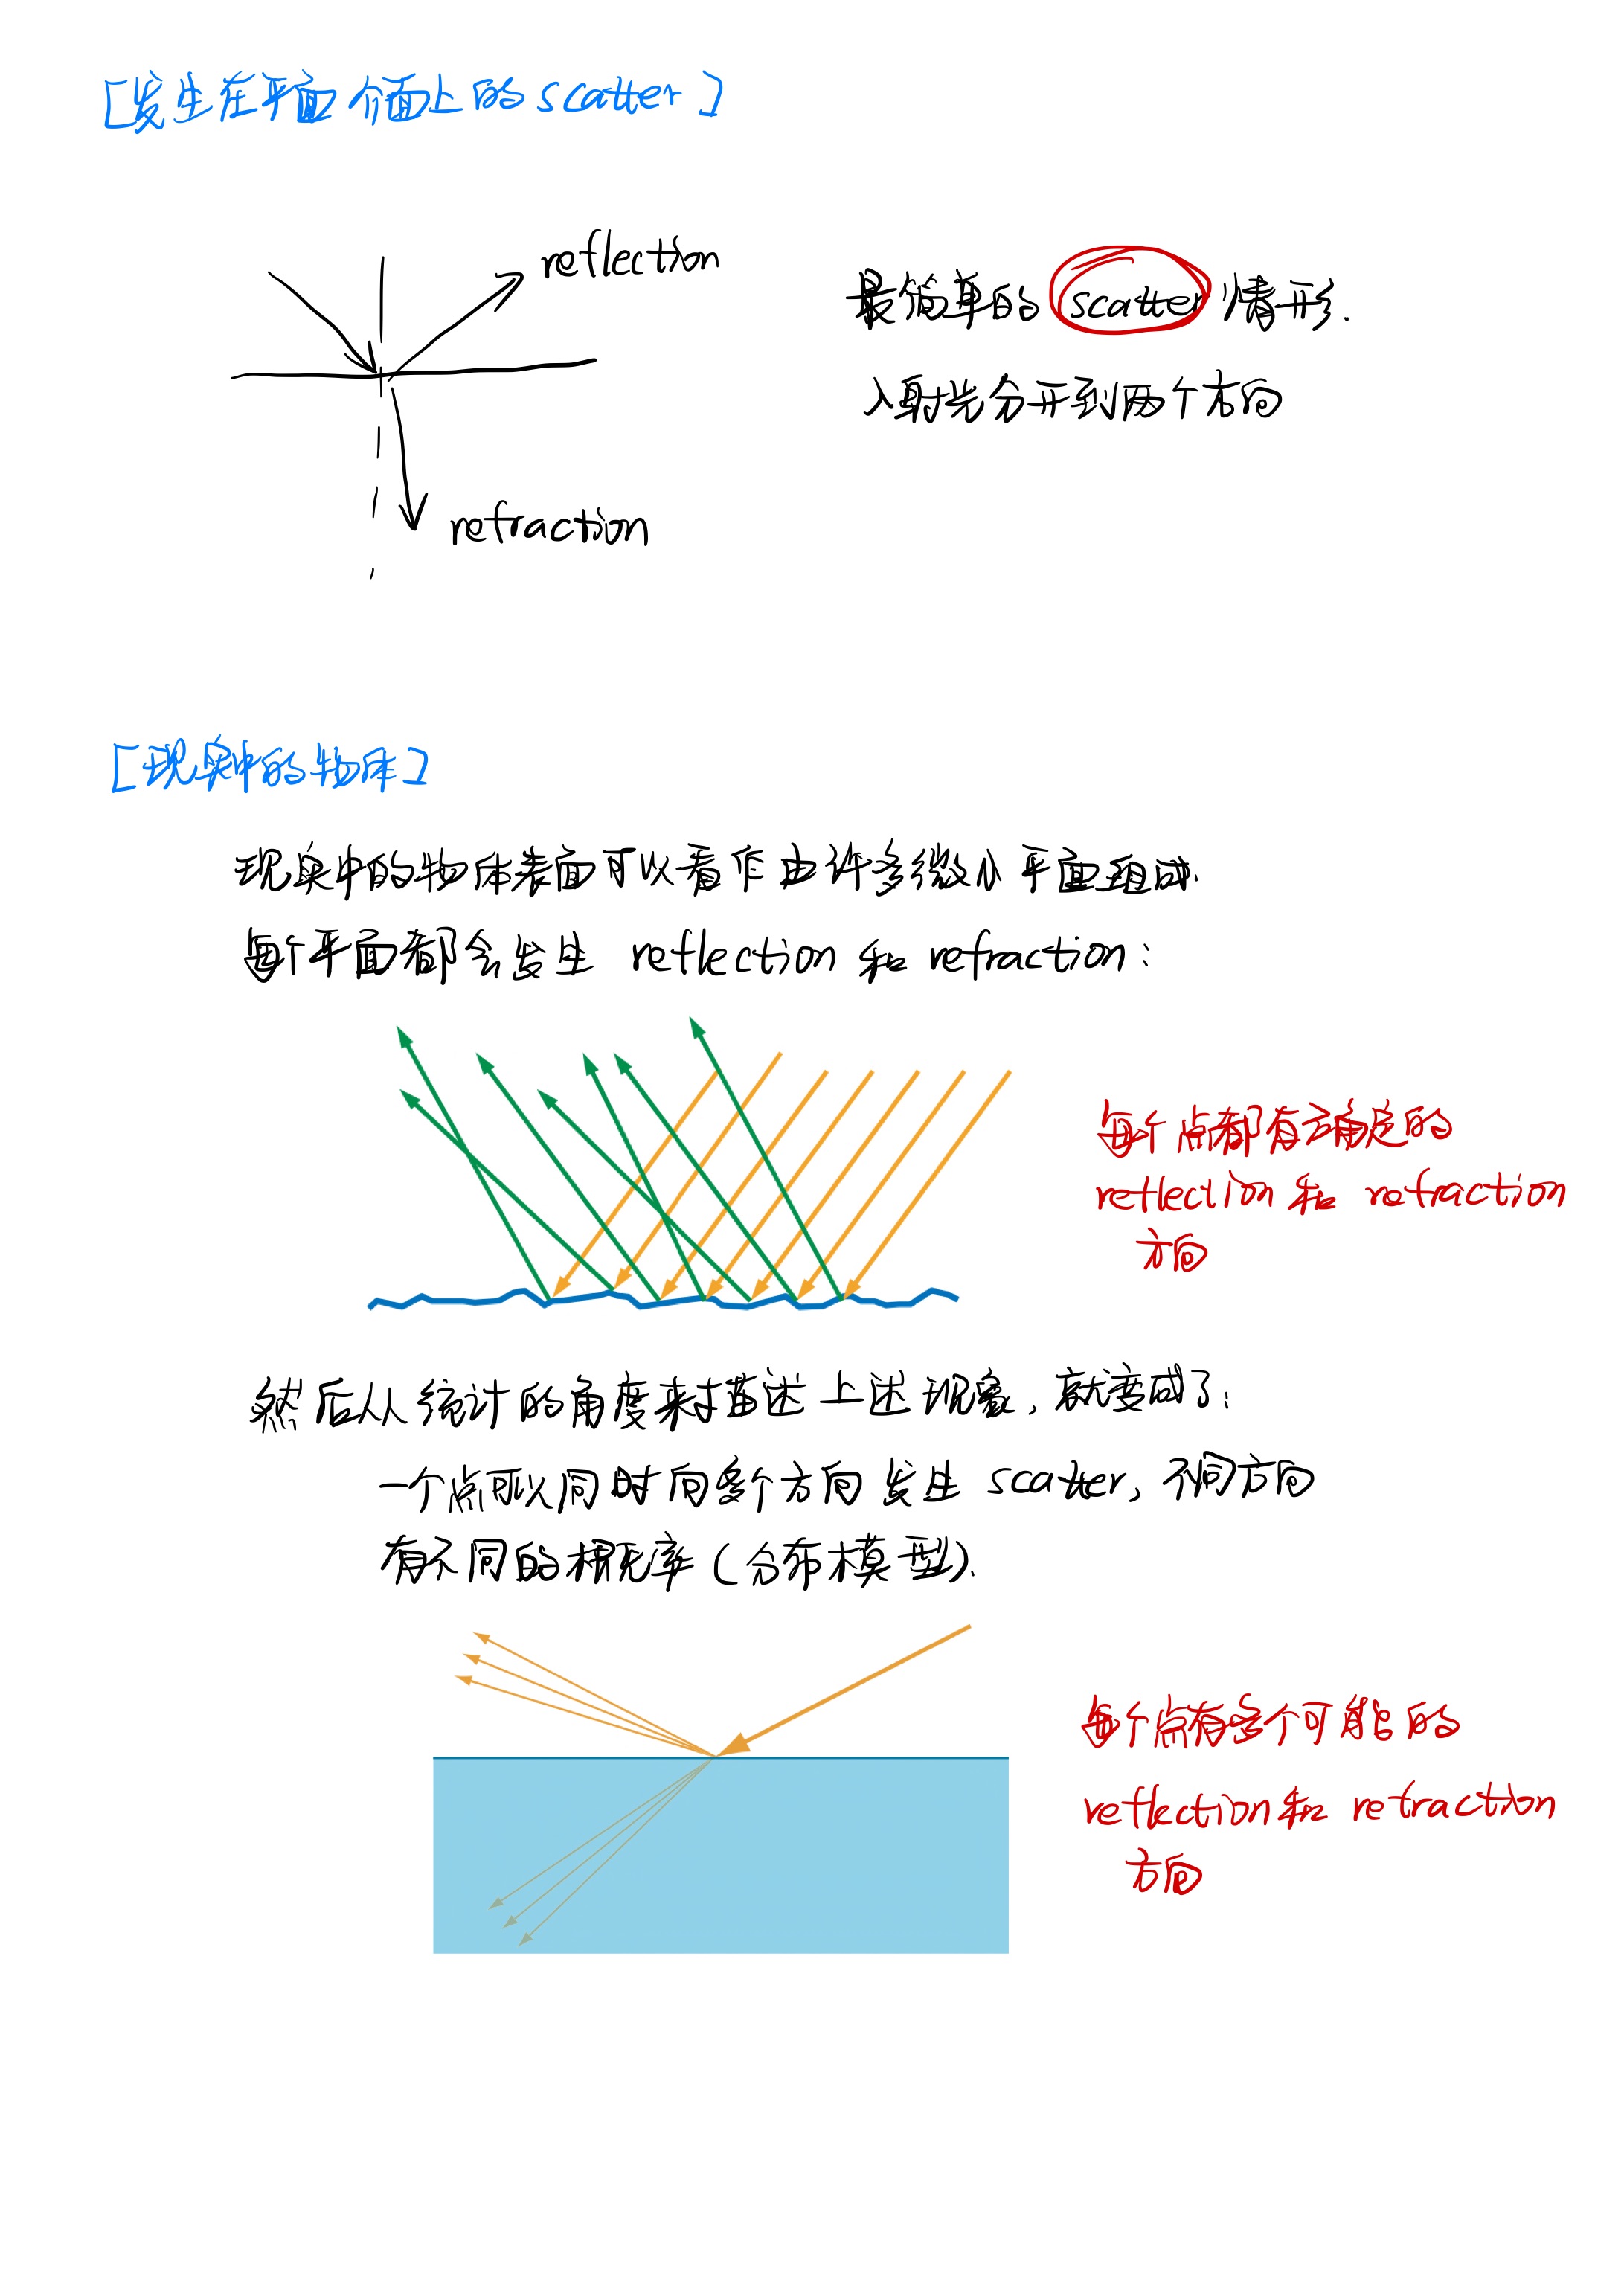 [发生在平面介面上的scatter]
reflection
最简单的scatter情形.
入射光分开到两个方向
refraction
[现实中的物体]
现实中的物体表面可以看作由许多微小平面组成.
每个平面都会发生 reflection 和 refraction:
每个点都有确定的
reflection 和 refraction
方向
然后从统计的角度来描述上述现象,就变成了:
一个点可以同时向多个方向发生 scatter, 不同方向
有不同的概率(分布模型).
每个点有多个可能的
reflection和 refraction
方向